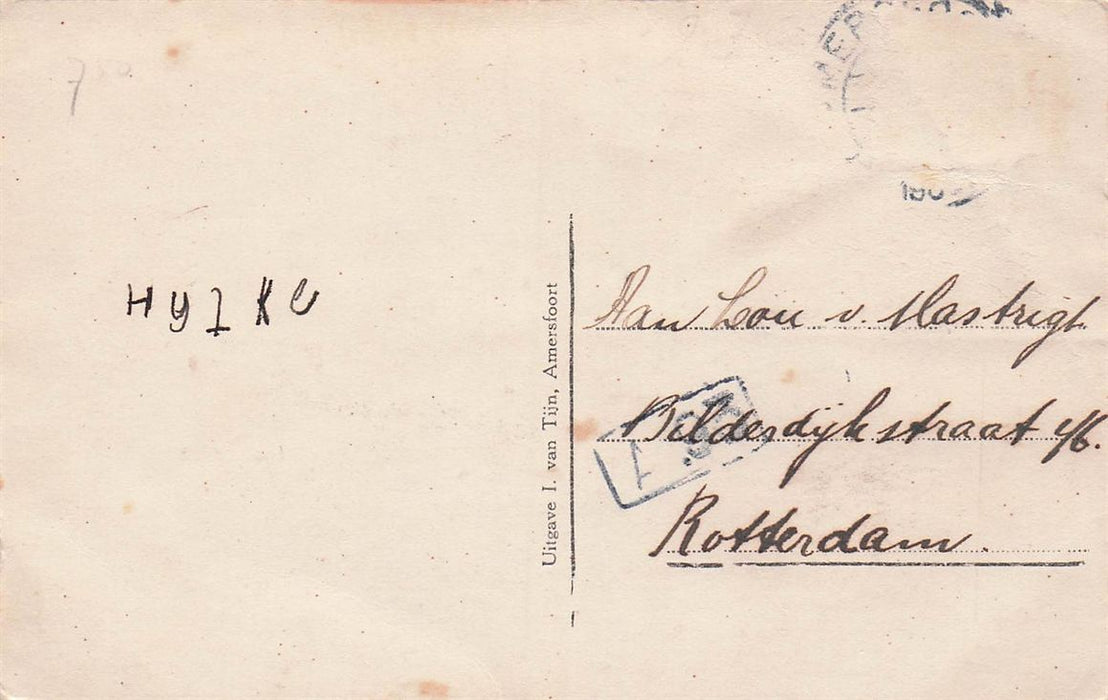 HYLKE
Uitgave I. van Tijn, Amersfoort
Aan Lou v. Mastrigt
Bilderdijkstraat
Rotterdam.